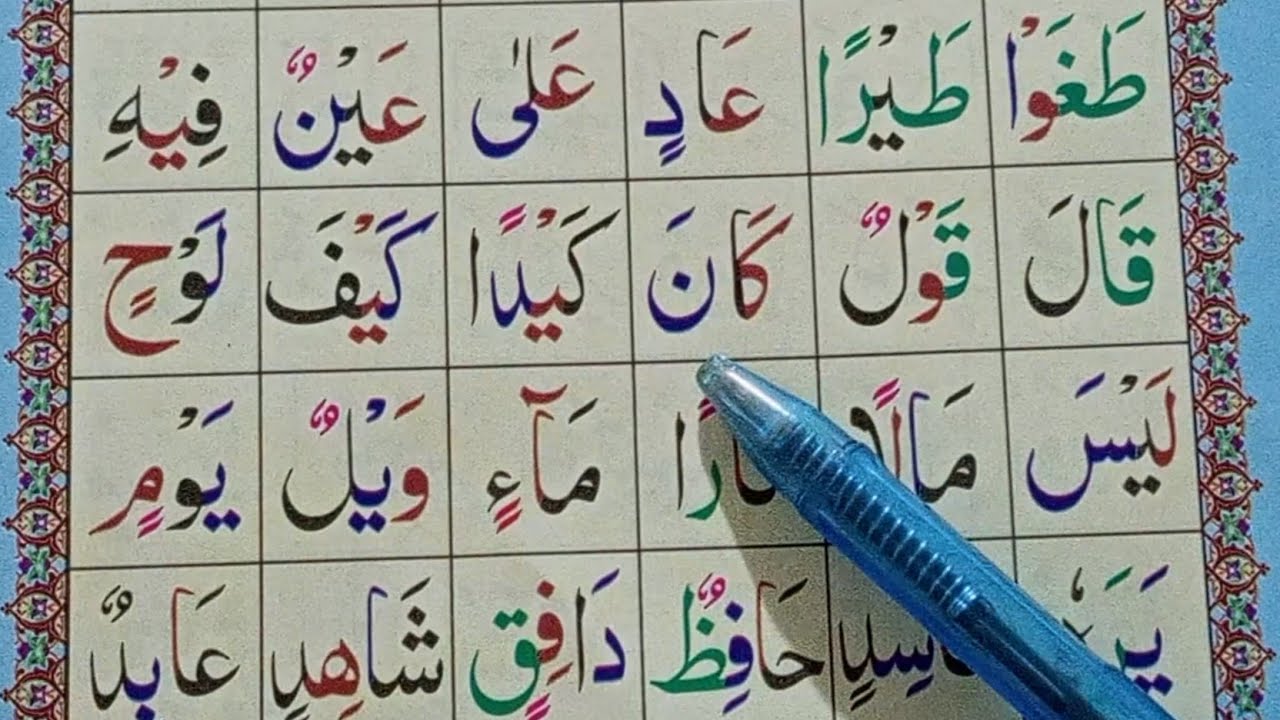 طَغَوْا طَيْرًا عَادٍ عَلٰى عَيْنٌ فِيْهِ
قَالَ قَوْلٌ كَانَ كَيْدًا كَيْفَ لَوْحٍ
لَيْسَ مَالًا مَآءٍ وَيْلٌ يَوْمٍ
حَافِظٌ دَافِقٍ شَاهِدٍ عَابِدٌ